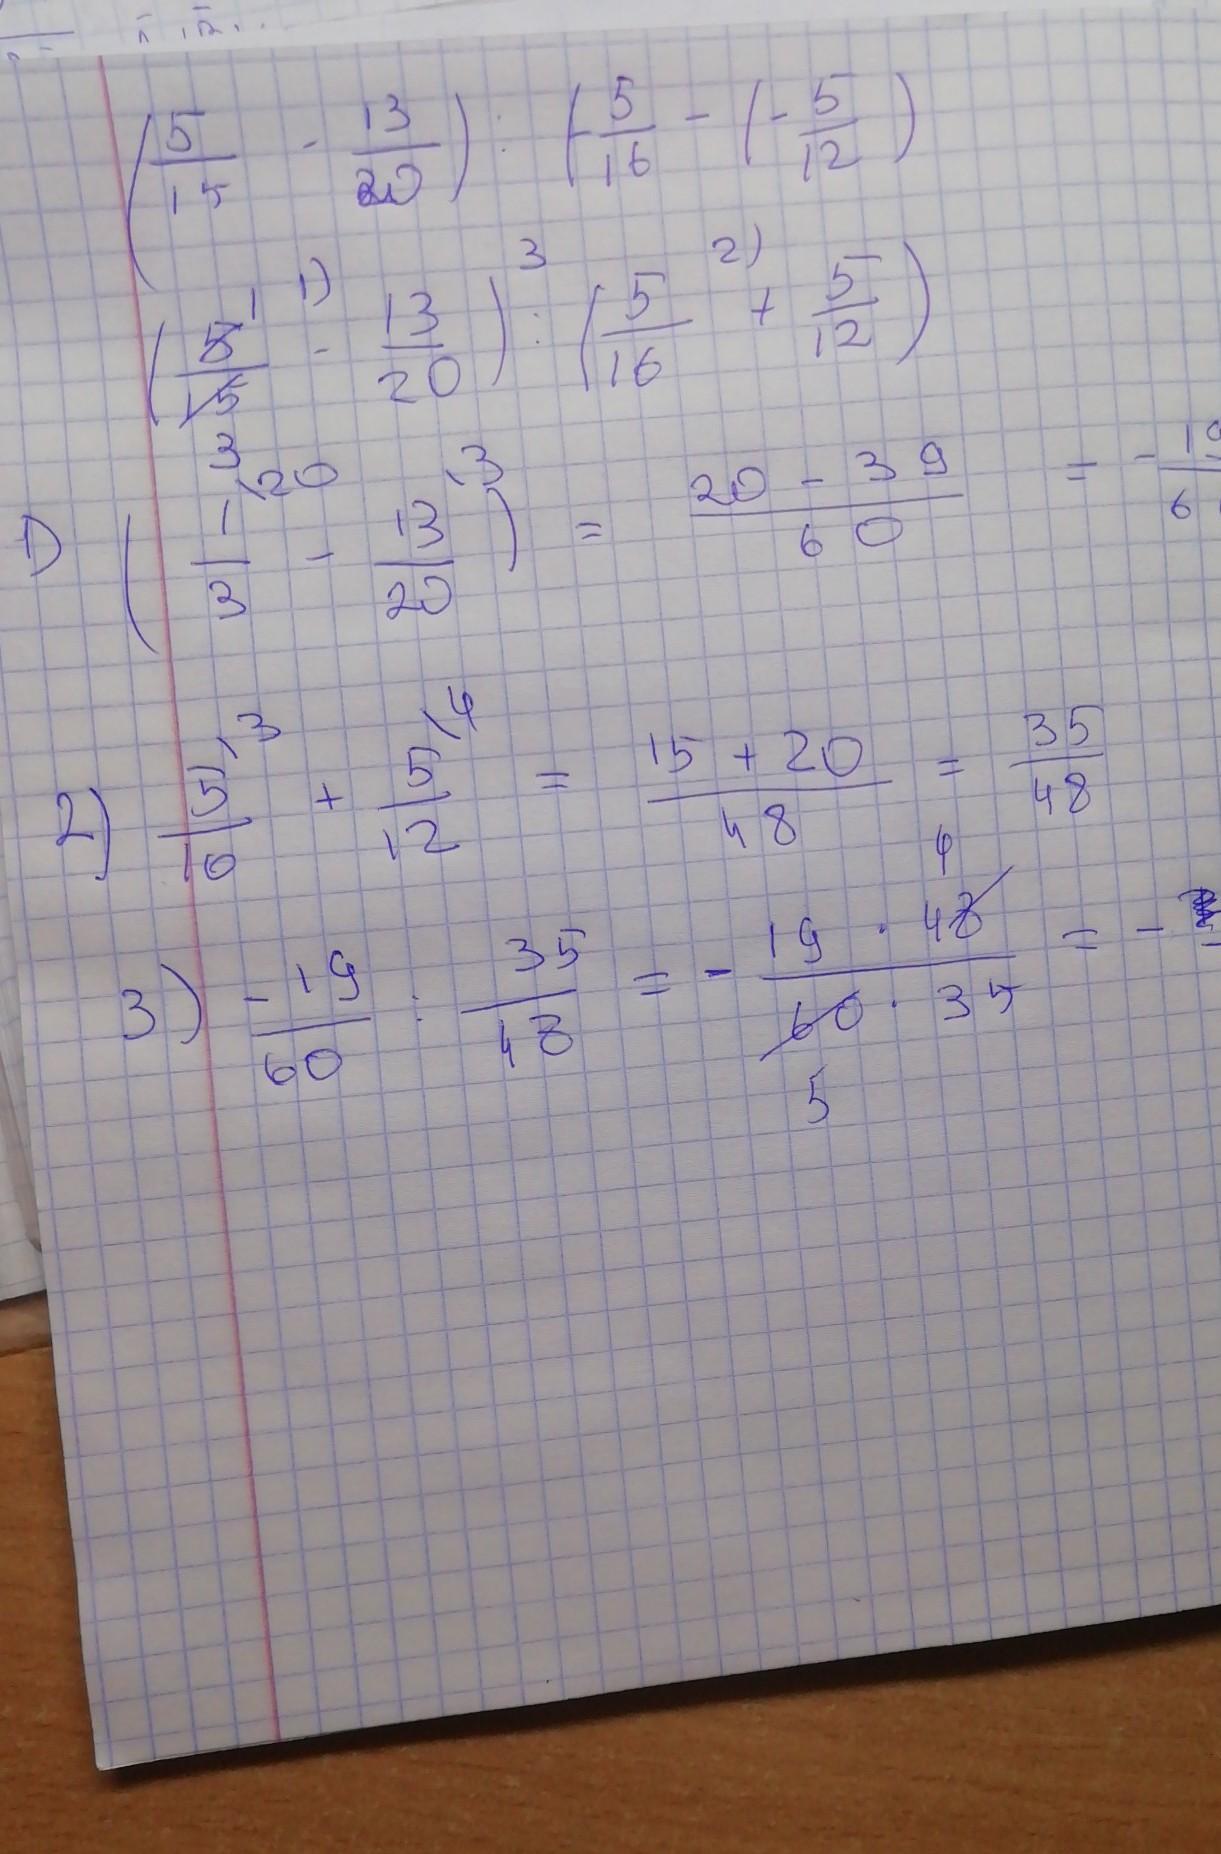 (5/15 - 13/20) : (-5/16 - (-5/12)
1) 3 2)
(5/15 1/3 - 13/20) : (5/16 + 5/12)
1) (1/3 \20 - 13/20 \3) = (20 - 39)/60 = - 19/6
2) 5/16 \3 + 5/12 \4 = (15 + 20)/48 = 35/48
3) -19/60 : 35/48 = - (19 · 48 4)/(60 5 · 35) = -